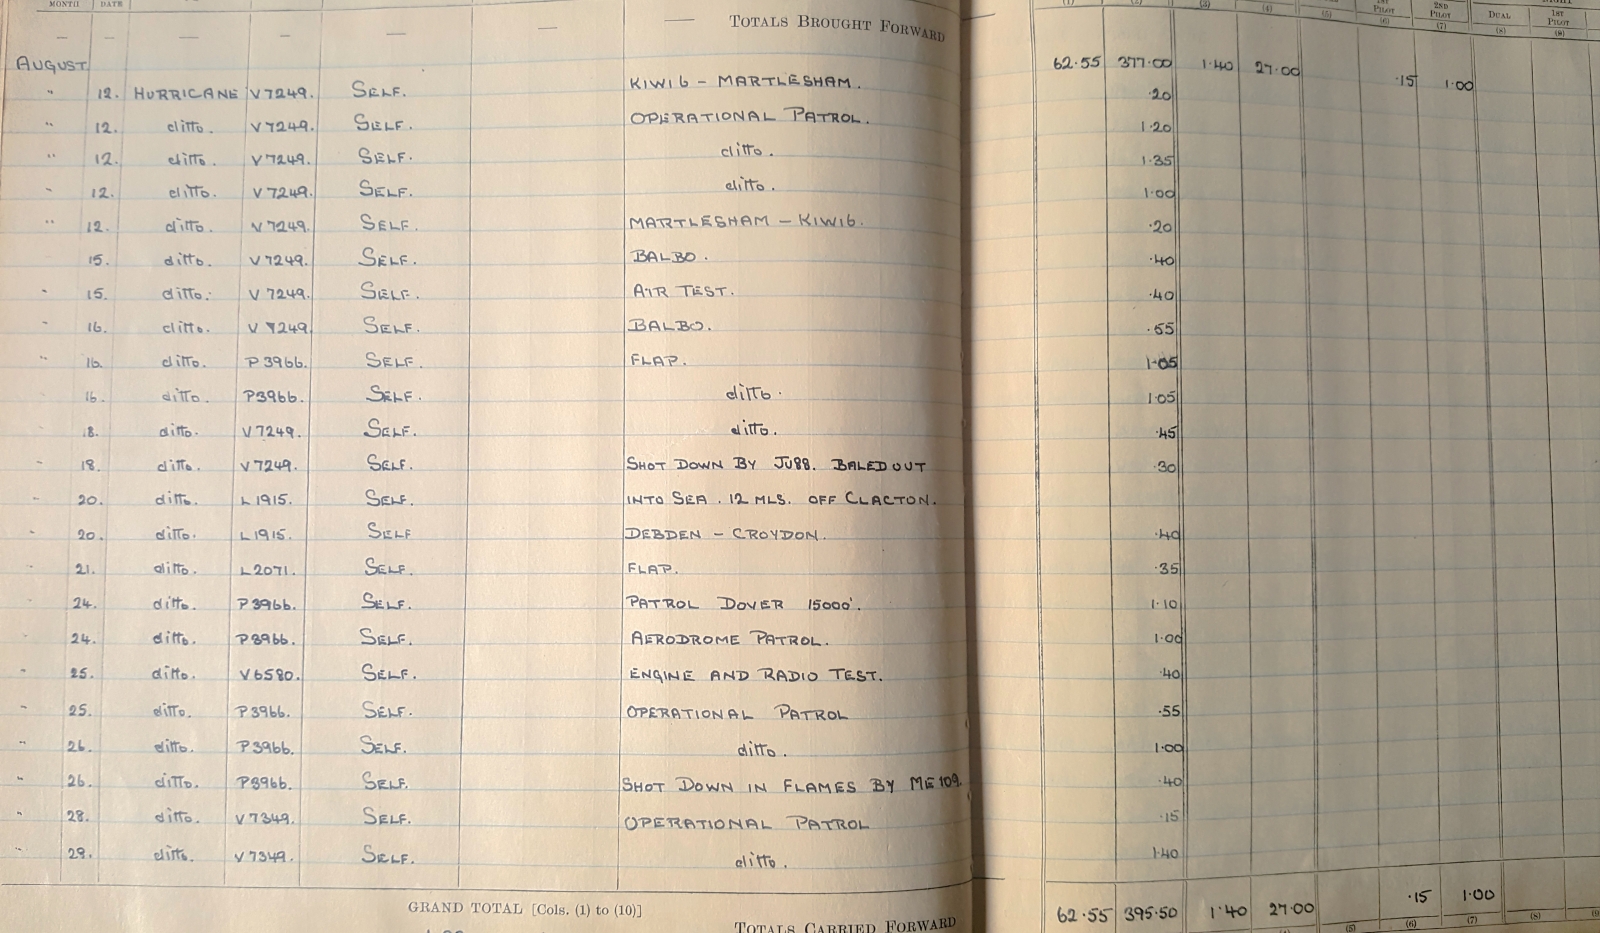 MONTH DATE (1) (2) (3) (4) (5) PILOT (6) 2ND PILOT (7) DUAL (8) 1ST PILOT (9)
— — — — — — — TOTALS BROUGHT FORWARD
AUGUST 62.55 377.00 1.40 27.00 .15 1.00
" 12. HURRICANE V7249. SELF. KIWI 6 – MARTLESHAM. .20
" 12. ditto. V7249. SELF. OPERATIONAL PATROL. 1.20
" 12. ditto. V7249. SELF. ditto. 1.35
" 12. ditto. V7249. SELF. ditto. 1.00
" 12. ditto. V7249. SELF. MARTLESHAM – KIWI 6. .20
15. ditto. V7249. SELF. BALBO. .40
" 15. ditto. V7249. SELF. AIR TEST. .40
" 16. ditto. V7249. SELF. BALBO. .55
" 16. ditto. P3966. SELF. FLAP. 1.05
" 16. ditto. P3966. SELF. ditto. 1.05
18. ditto. V7249. SELF. ditto. .45
" 18. ditto. V7249. SELF. SHOT DOWN BY JU88. BALED OUT .30
" 20. ditto. L1915. SELF. INTO SEA. 12 MLS. OFF CLACTON.
" 20. ditto. L1915. SELF DEBDEN – CROYDON. .40
" 21. ditto. L2071. SELF. FLAP. .35
" 24. ditto. P3966. SELF. PATROL DOVER 15000'. 1.10
" 24. ditto. P3966. SELF. AERODROME PATROL. 1.00
" 25. ditto. V6580. SELF. ENGINE AND RADIO TEST. .40
" 25. ditto. P3966. SELF. OPERATIONAL PATROL .55
" 26. ditto. P3966. SELF. ditto. 1.00
" 26. ditto. P3966. SELF. SHOT DOWN IN FLAMES BY ME 109. .40
" 28. ditto. V7349. SELF. OPERATIONAL PATROL .15
" 29. ditto. V7349. SELF. ditto. 1.40
GRAND TOTAL [Cols. (1) to (10)] 62.55 395.50 1.40 27.00 .15 1.00
TOTALS CARRIED FORWARD (5) (6) (7) (8)